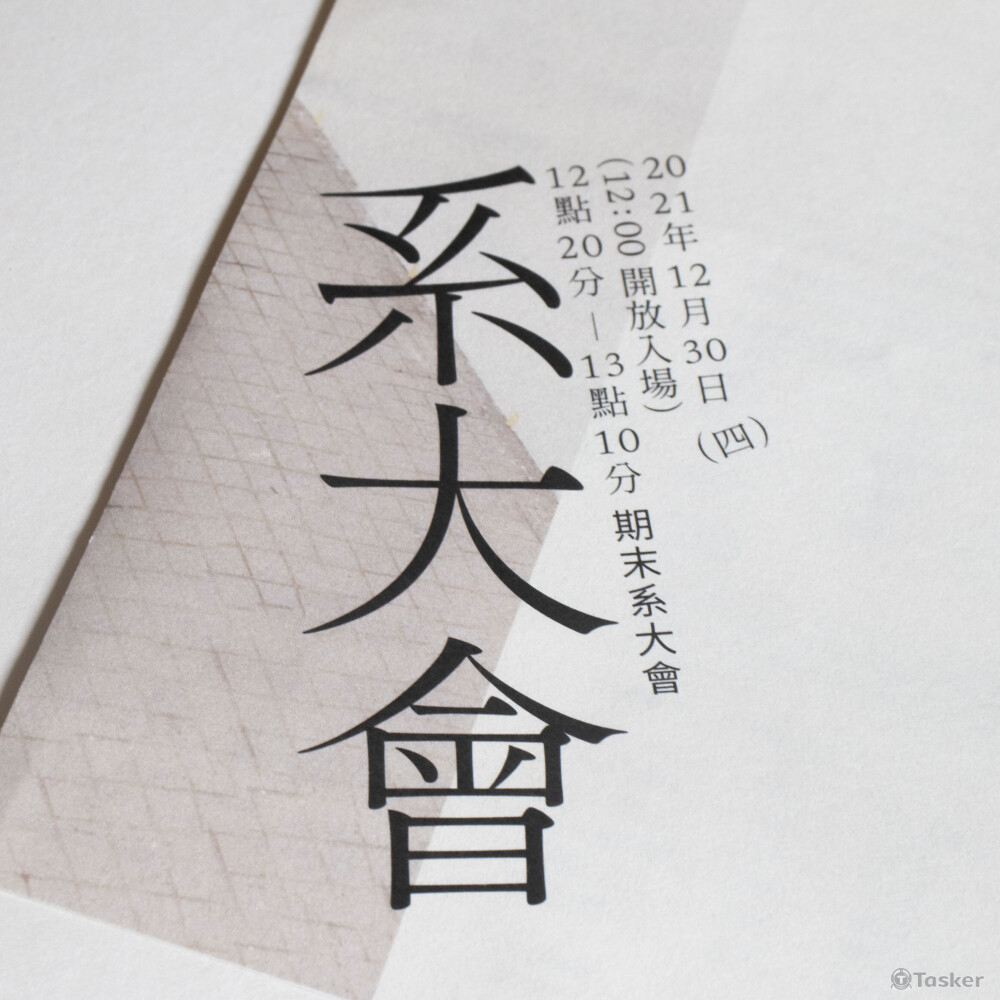 2021年12月30日（四）
（12:00開放入場）
12點20分—13點10分 期末系大會
系大會
Tasker